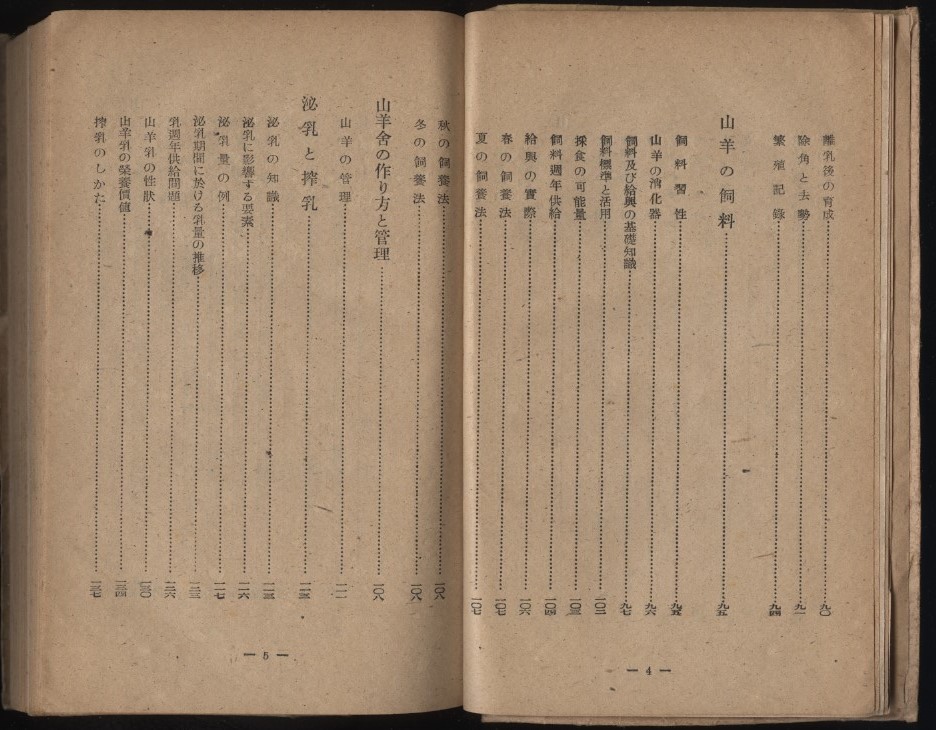 離乳後の育成……九〇
除角と去勢……九一
繁殖記錄……九四
山羊の飼料……九五
飼料習性……九五
山羊の消化器……九六
飼料及び給與の基礎知識……九七
飼料標準と活用……一〇二
採食の可能量……一〇三
飼料週年供給……一〇四
給與の實際……一〇六
春の飼養法……一〇七
夏の飼養法……一〇七
— 4 —
秋の飼養法……一〇八
冬の飼養法……一〇八
山羊舍の作り方と管理……一〇八
山羊の管理……一一一
泌乳と搾乳……一一三
泌乳の知識……一一三
泌乳に影響する要素……一一六
泌乳量の例……一一七
泌乳期間に於ける乳量の推移……一二三
乳週年供給問題……一二六
山羊乳の性狀……一三〇
山羊乳の榮養價値……一三四
搾乳のしかた……一三七
— 5 —